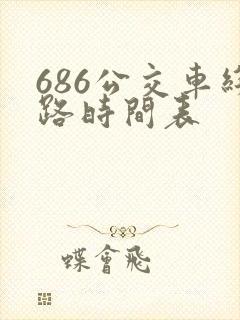 686公交車
路時間表
蝶會飛